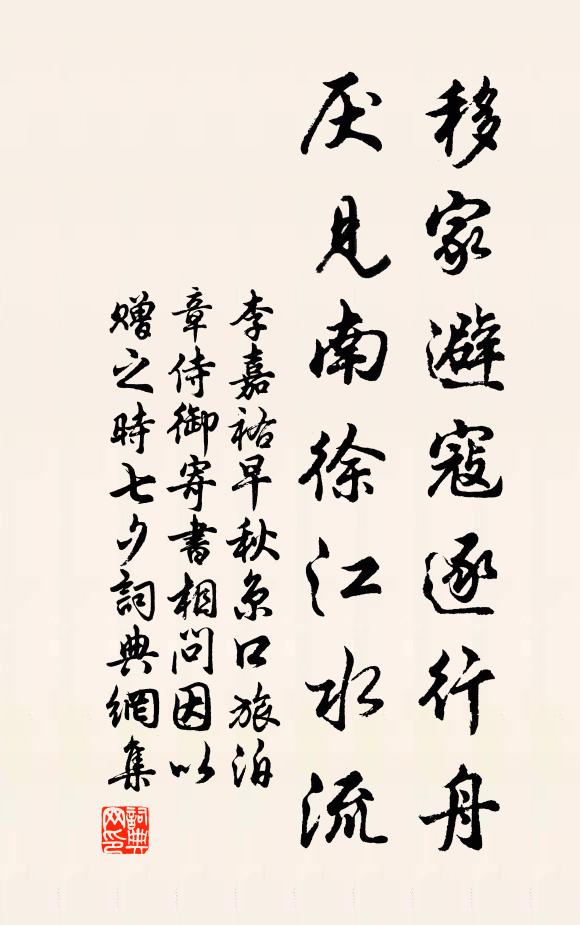 移家避寇逐行舟
厌见南徐江水流
李嘉祐早秋京口旅泊
章侍御寄書相問因以
赠之時七夕詞典網集
詞典網印